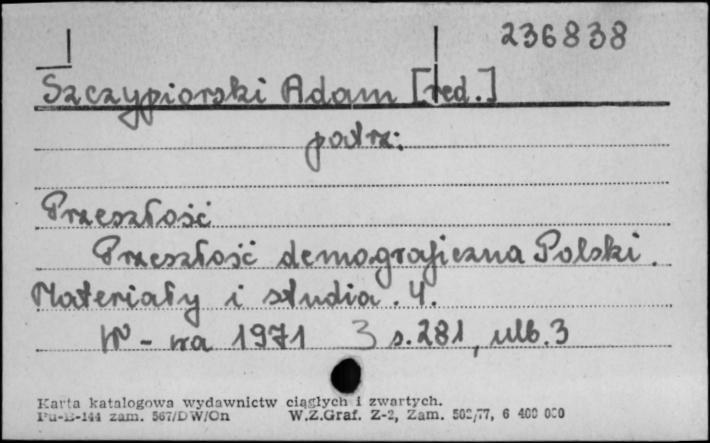 236838
Szczypiorski Adam [red.]
patrz:
Przeszłość
Przeszłość demograficzna Polski.
Materiały i studia. 4.
W-wa 1971 3 s. 281, ulb. 3
Karta katalogowa wydawnictw ciągłych i zwartych.
Pu-B-144 zam. 567/DW/On W.Z.Graf. Z-2, Zam. 502/77, 6 400 000